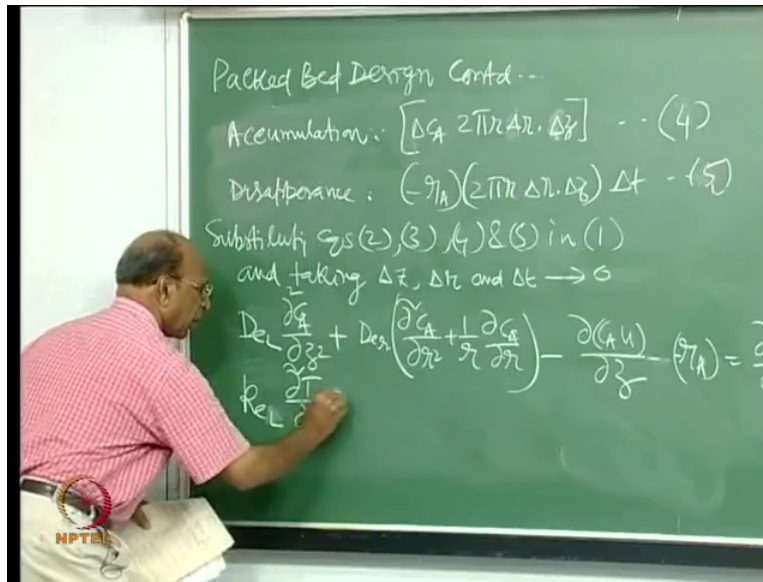 Packed Bed Design Contd...
Accumulation: [ΔC_A 2πr Δr. Δz] -- (4)
Disapperance: (-r_A)(2πr Δr. Δz) Δt - (5)
Substituting Eqs (2), (3), (4) & (5) in (1)
and taking Δz, Δr and Δt → 0
D_eL ∂²C_A/∂z² + D_er (∂²C_A/∂r² + 1/r ∂C_A/∂r) - ∂(C_A u)/∂z - (-r_A) = ∂
k_eL ∂²T/∂
NPTEL